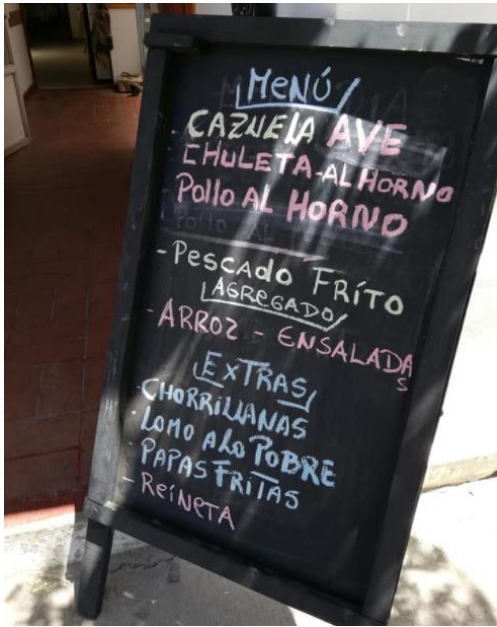 Menú
- CAZUELA AVE
- CHULETA-AL HORNO
- Pollo AL HORNO
- Pescado Fríto
AGREGADO
- ARROZ - ENSALADAS
EXTRAS
- CHORRILLANAS
- LOMO A LO POBRE
- PAPAS FRITAS
- ReíNeTA